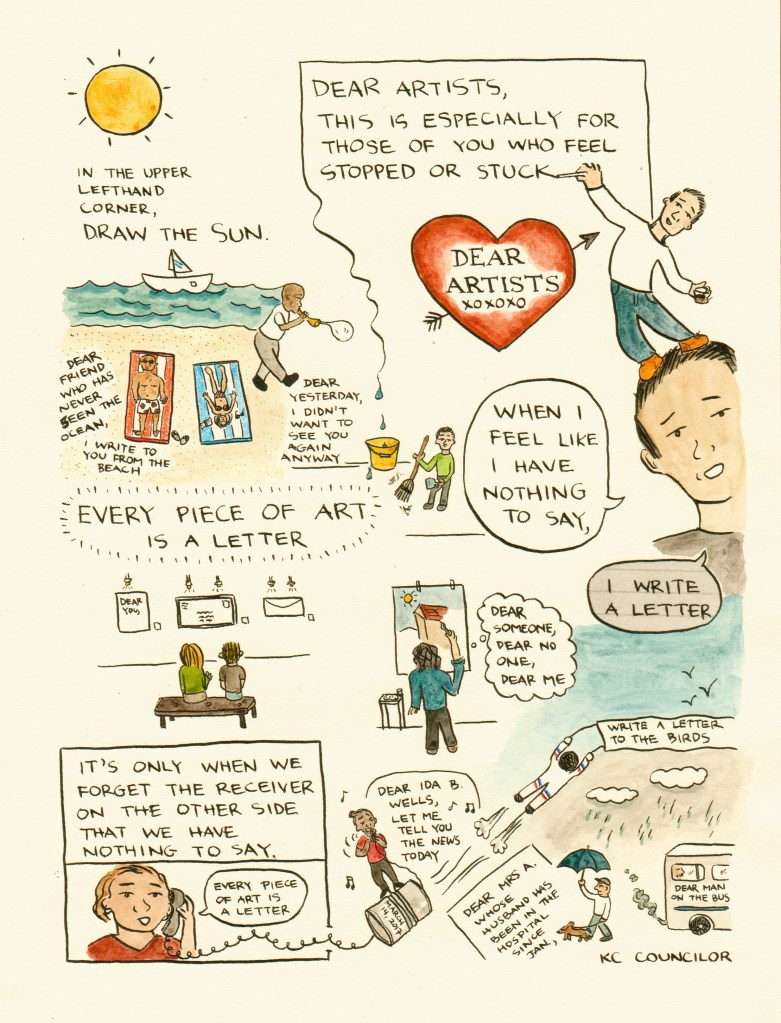 DEAR ARTISTS,
THIS IS ESPECIALLY FOR
THOSE OF YOU WHO FEEL
STOPPED OR STUCK
IN THE UPPER
LEFTHAND
CORNER,
DRAW THE SUN.
DEAR
ARTISTS
XOXOXO
DEAR
FRIEND
WHO HAS
NEVER
SEEN THE
OCEAN,
I WRITE TO
YOU FROM THE
BEACH
DEAR
YESTERDAY,
I DIDN'T
WANT TO
SEE YOU
AGAIN
ANYWAY
WHEN I
FEEL LIKE
I HAVE
NOTHING
TO SAY,
I WRITE
A LETTER
EVERY PIECE OF ART
IS A LETTER
DEAR
YOU,
DEAR
SOMEONE,
DEAR NO
ONE,
DEAR ME
WRITE A LETTER
TO THE BIRDS
IT'S ONLY WHEN WE
FORGET THE RECEIVER
ON THE OTHER SIDE
THAT WE HAVE
NOTHING TO SAY.
EVERY PIECE
OF ART IS
A LETTER
DEAR IDA B.
WELLS,
LET ME
TELL YOU
THE NEWS
TODAY
MARCH
4, 2017
DEAR MRS A.
WHOSE
HUSBAND HAS
BEEN IN THE
HOSPITAL
SINCE
JAN,
DEAR MAN
ON THE BUS
KC COUNCILOR